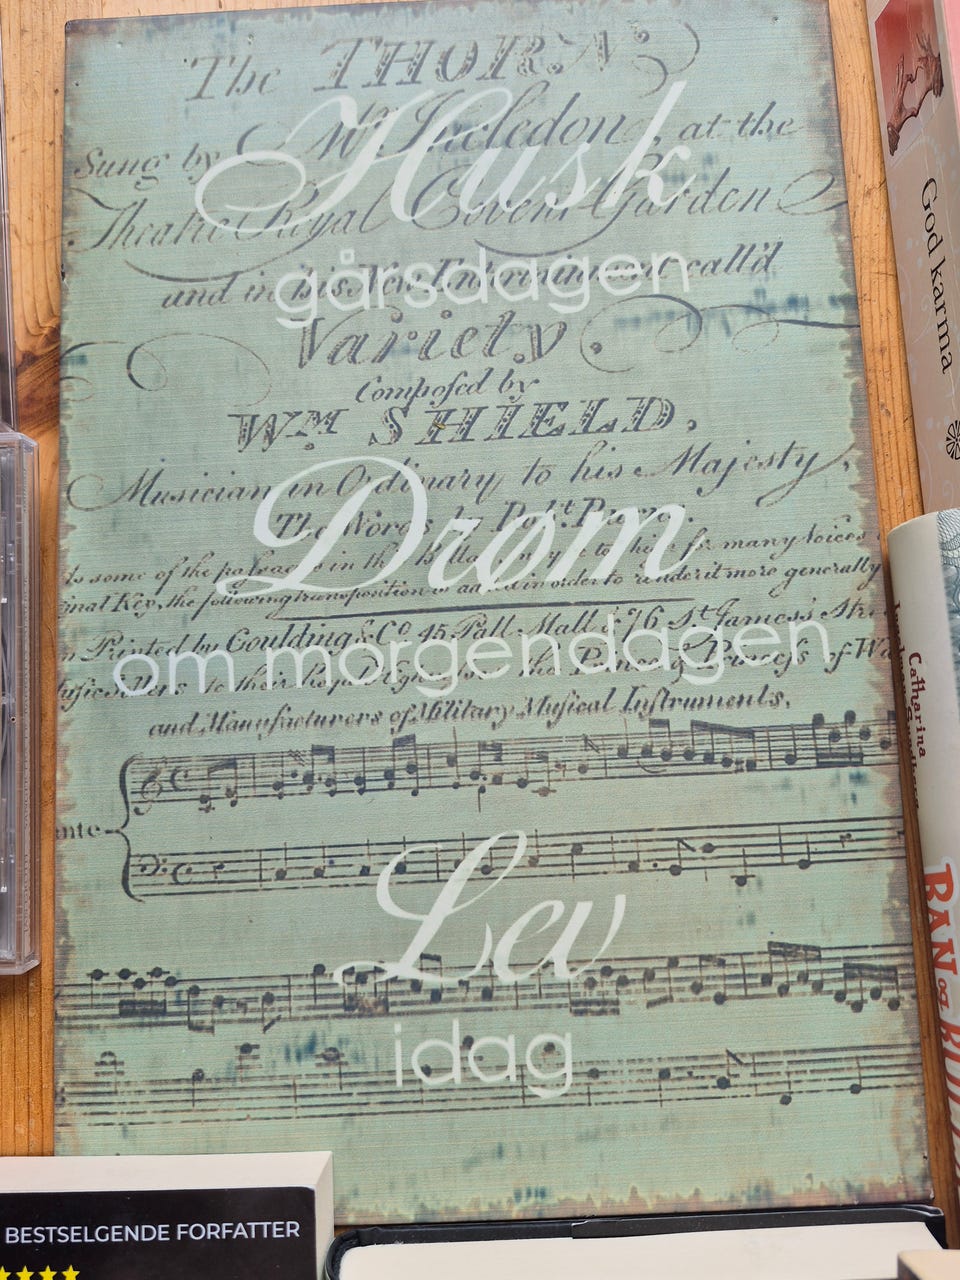 The THORN,
Sung by Mr. Incledon, at the
Theatre Royal Covent Garden
and in his New Entertainment call'd
Variety.
Composed by
WM. SHIELD,
Musician in Ordinary to his Majesty,
The Words by Robt.
As some of the in the may be to high for many Voices
the following transposition is added in order to render it more generally
Printed by Goulding & Co. 45 Pall Mall & 76 St. James's Str
to their the Prince & Princess of Wa
and Manufacturers of Military Musical Instruments.
Husk
gårsdagen
Drøm
om morgendagen
Lev
idag
God karma
Catharina
BAN og
BESTSELGENDE FORFATTER